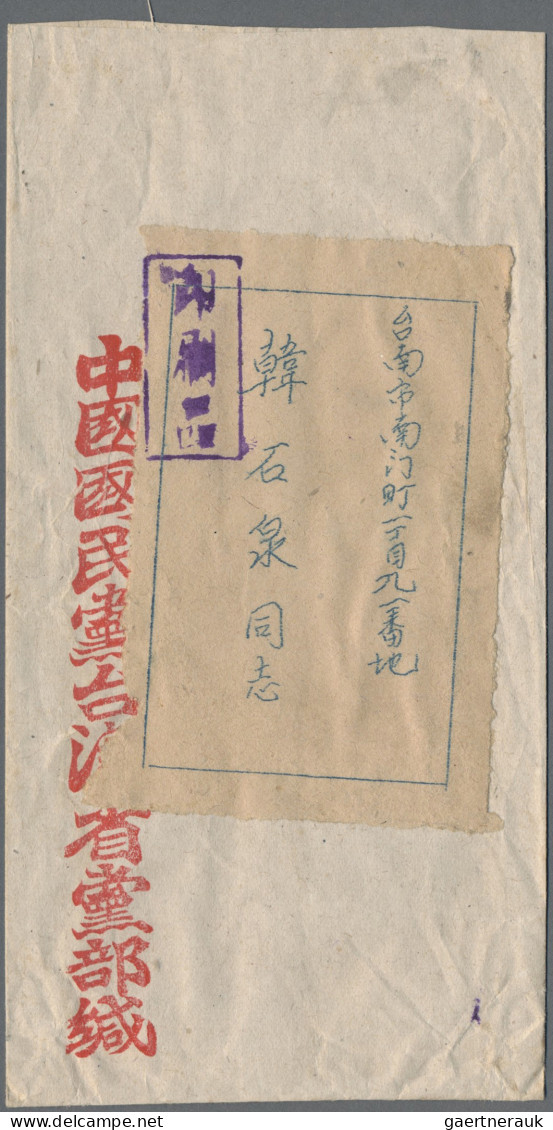 台南市南门町一丁目九一番地
韓石泉同志
中國國民黨台湾省黨部緘
DELCAMPE.NET
gaertnerauk